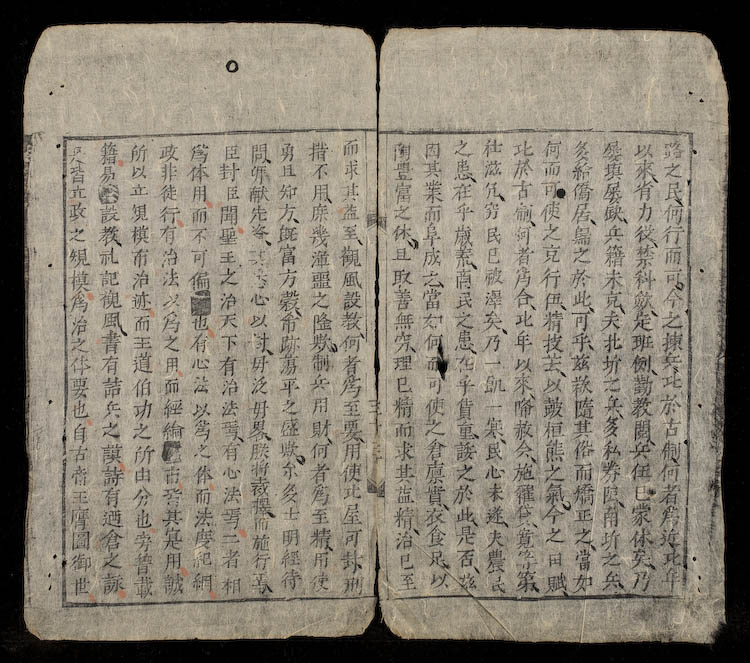 路之民何行而可今之揀兵比於古制何者為近比年
以來省力役禁科歛定班例勤教閱兵伍已蒙休矣乃
屡填屡缺兵籍未克夫北圻之兵多私券區南圻之兵
多給僑居歸之於此可乎茲欲隨其俗而矯正之當如
何而可使之克行伍精技去以皷桓熊之氣今之田賦
比於古制何者為合比年以來降赦公施䆁貸䔍等第
壮滋冗窮民已被澤矣乃一飢一寒民心未遂夫農民
之患在乎歲荒商民之患在乎貨重諉之於此是否茲
因其業而阜成之當如何而可使之倉廪實衣食足以
陶豐富之休且取善無究理已精而求其益精治已至
三十三
而求其益至觀風設教何者為至要用使比屋可封刑
措不用庶幾潼噩之隆欤制兵用財何者為至精用使
勇且知方既富方穀希跡蕩平之盛欤尒多士明經待
問年献先資其悉心以對毋泛毋畧朕將裁擇而施行焉
臣封臣聞聖王之治天下有治法焉有心法焉二者相
為体用而不可偏也有心法以為之体而法度紀綱
政非徒行有治法以為之用而經綸古皆其寔用誠
所以立規模有治迹而王道伯功之所由分也旁普載
籍易設教礼記觀風書有詰兵之謨詩有迺倉之詠
皆立政之規模為治之体要也自古帝王膺圖御世